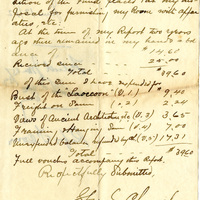 dition of the Fund placed
for furnishing my Room with appa
ratus, etc.
At the time of my Report two years
ago there remained in my hands a bal
ance of $14.61
Received since 25.00
Total $39.60
of this sum I have expended for
Bust of the Laocoon (V. 1.) $9.40
Freight on Same (V. 2.) 2.24
Views of Ancient Architecture etc (V. 3) 3.65
Framing & Hanging Same (V. 4) 7.00
Unexpended balance, 17.31
Total $39.60
Full vouchers accompany this Report.
Respectfully Submitted,